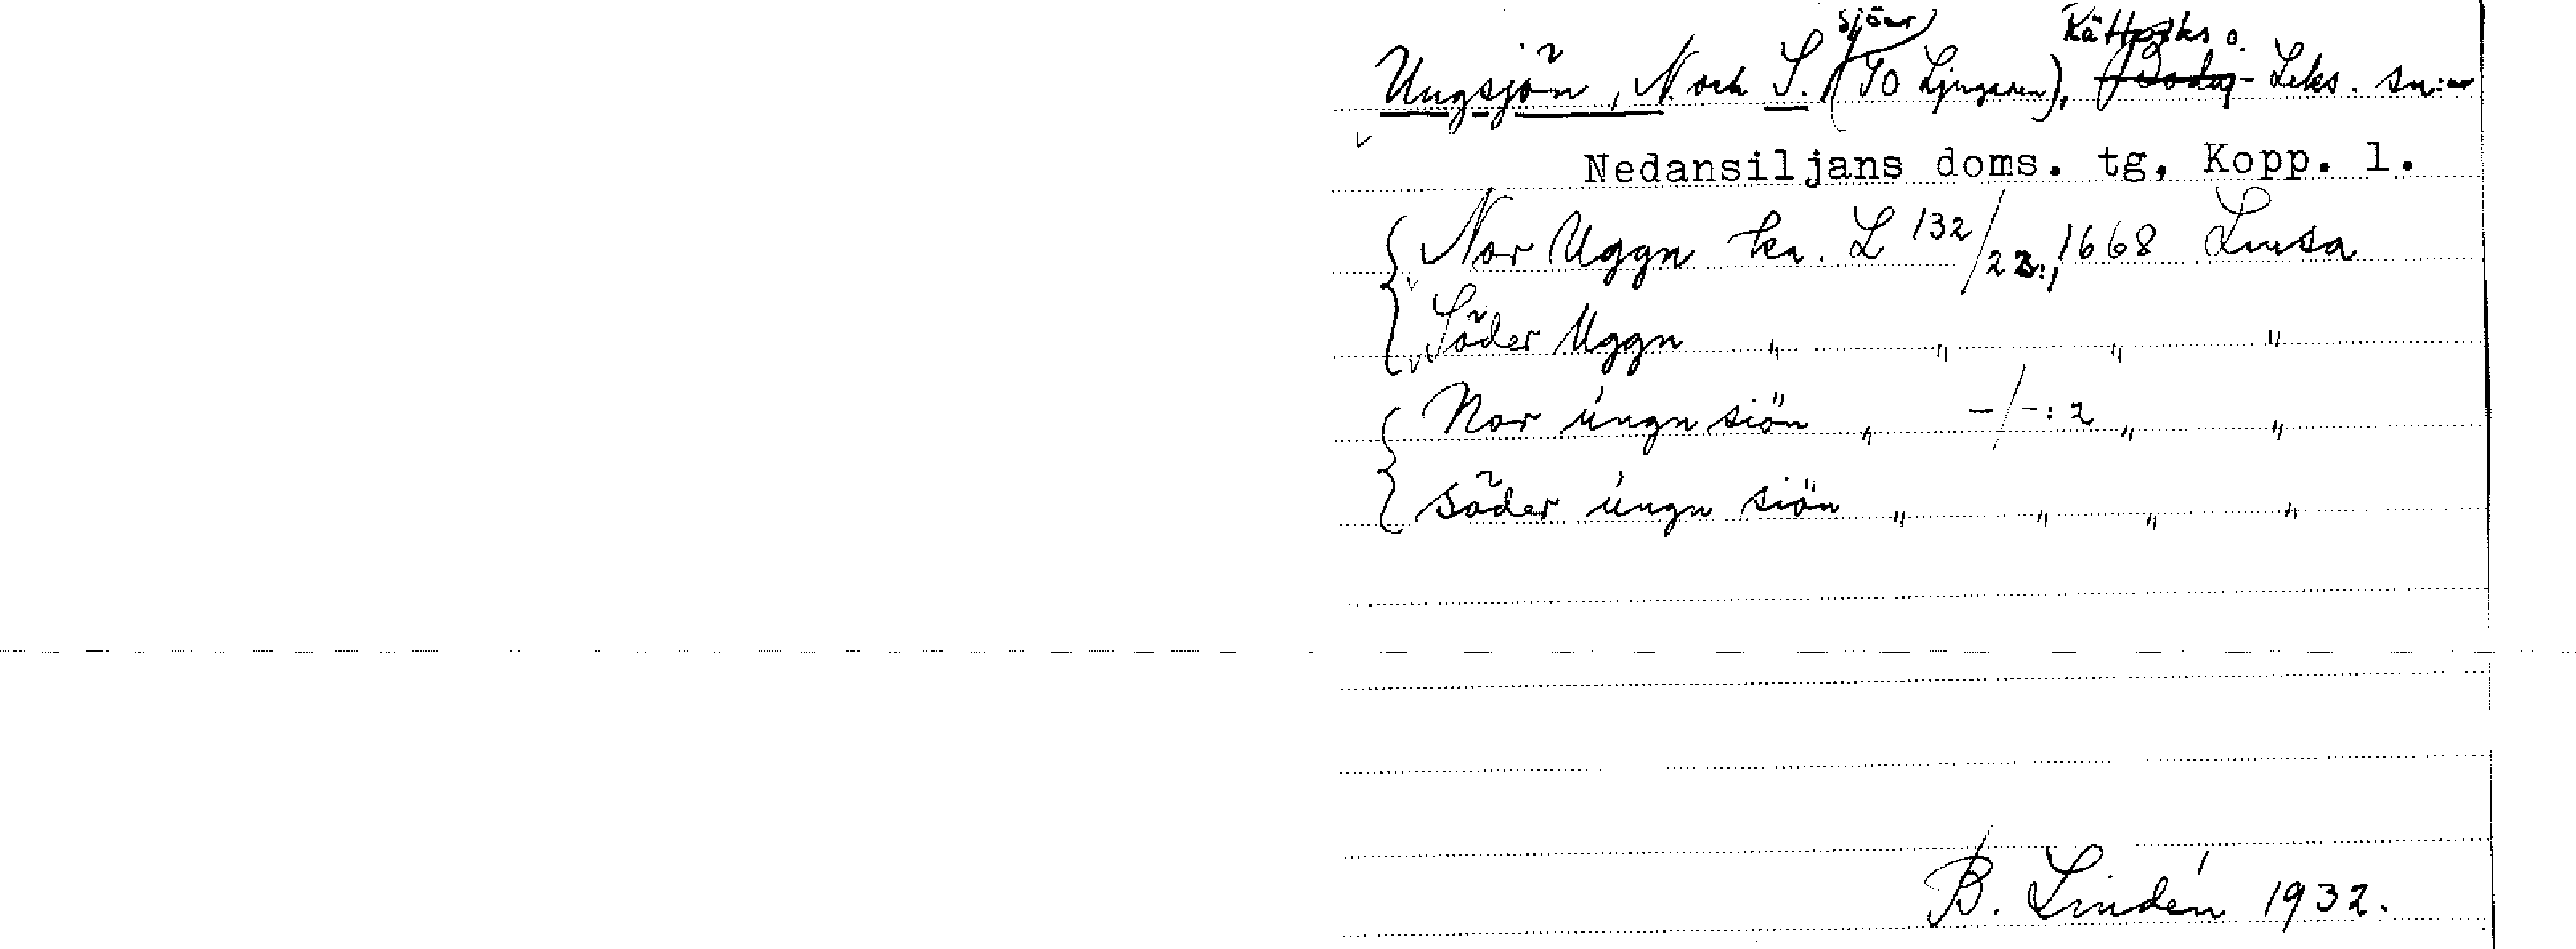 sjöar Kättboks o.
Ungsjön, N. och S. (SO Ljugaren), Boda- Leks. sn:ar
Nedansiljans doms. tg, Kopp. l.
Nor Uggn ka. L 132/22:, 1668 Lursa
Söder Uggn " " " "
Nor úngn siön " -/-: 2 " "
söder úngn siön " " " "
B. Lindén 1932.